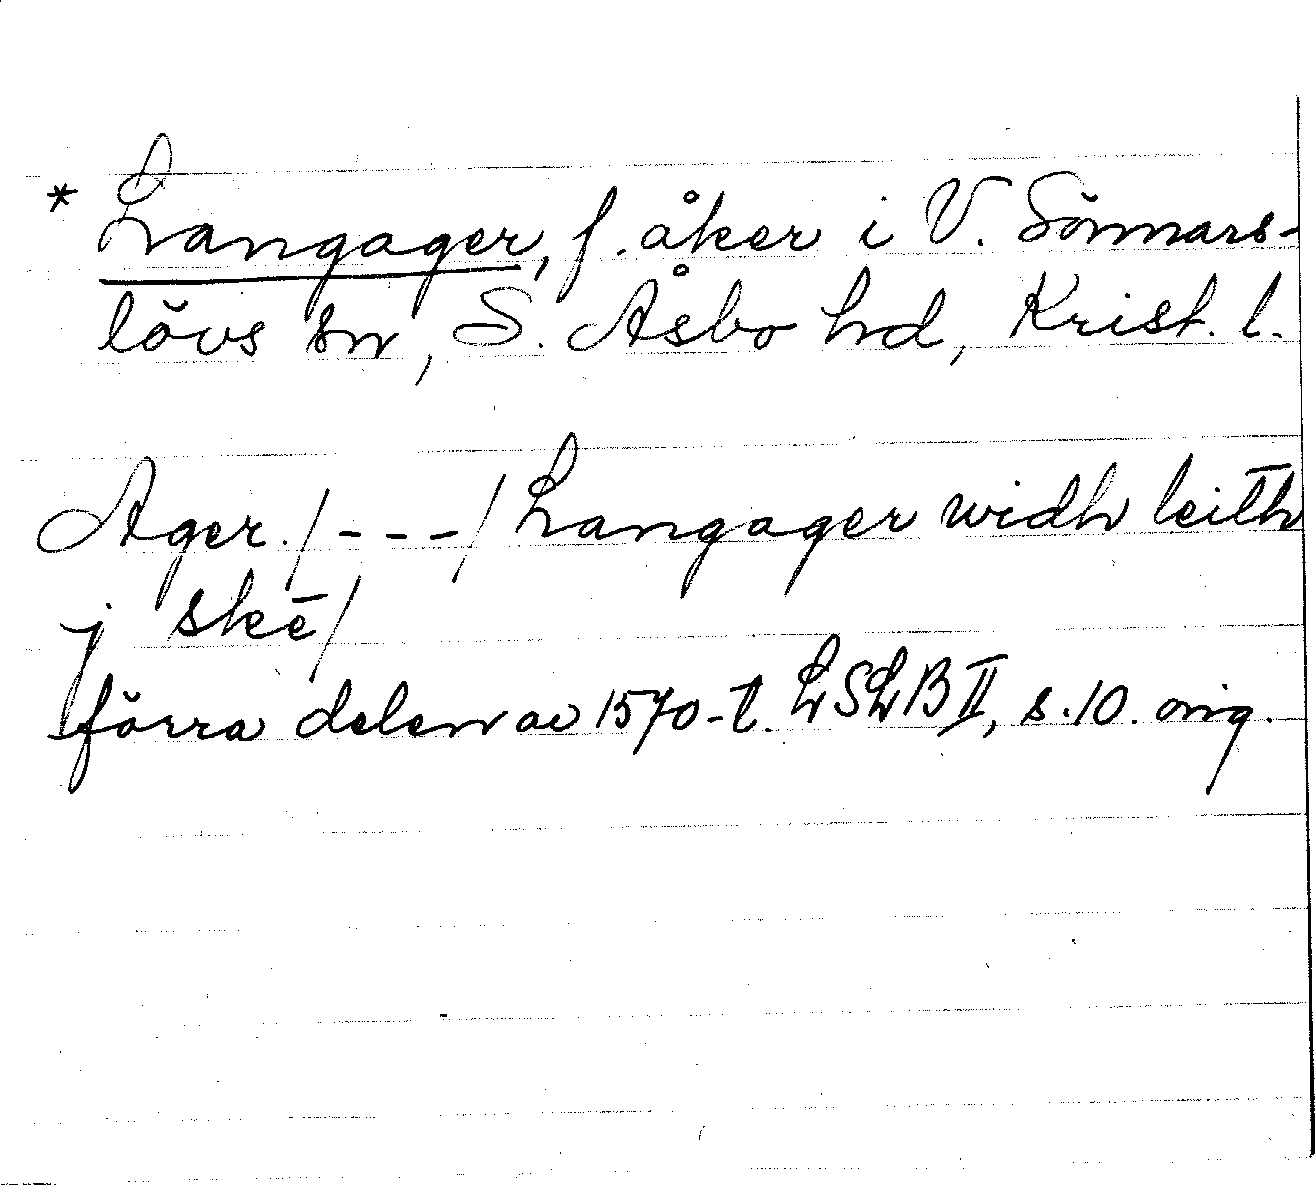 * Langager, f. åker i V. Sönnars-
lövs sn, S. Åsbo hd, Krist. l.
Ager. /---/ Langager widh leith
j skē/
förra delen av 1570-t. LSLB II, s. 10. orig.